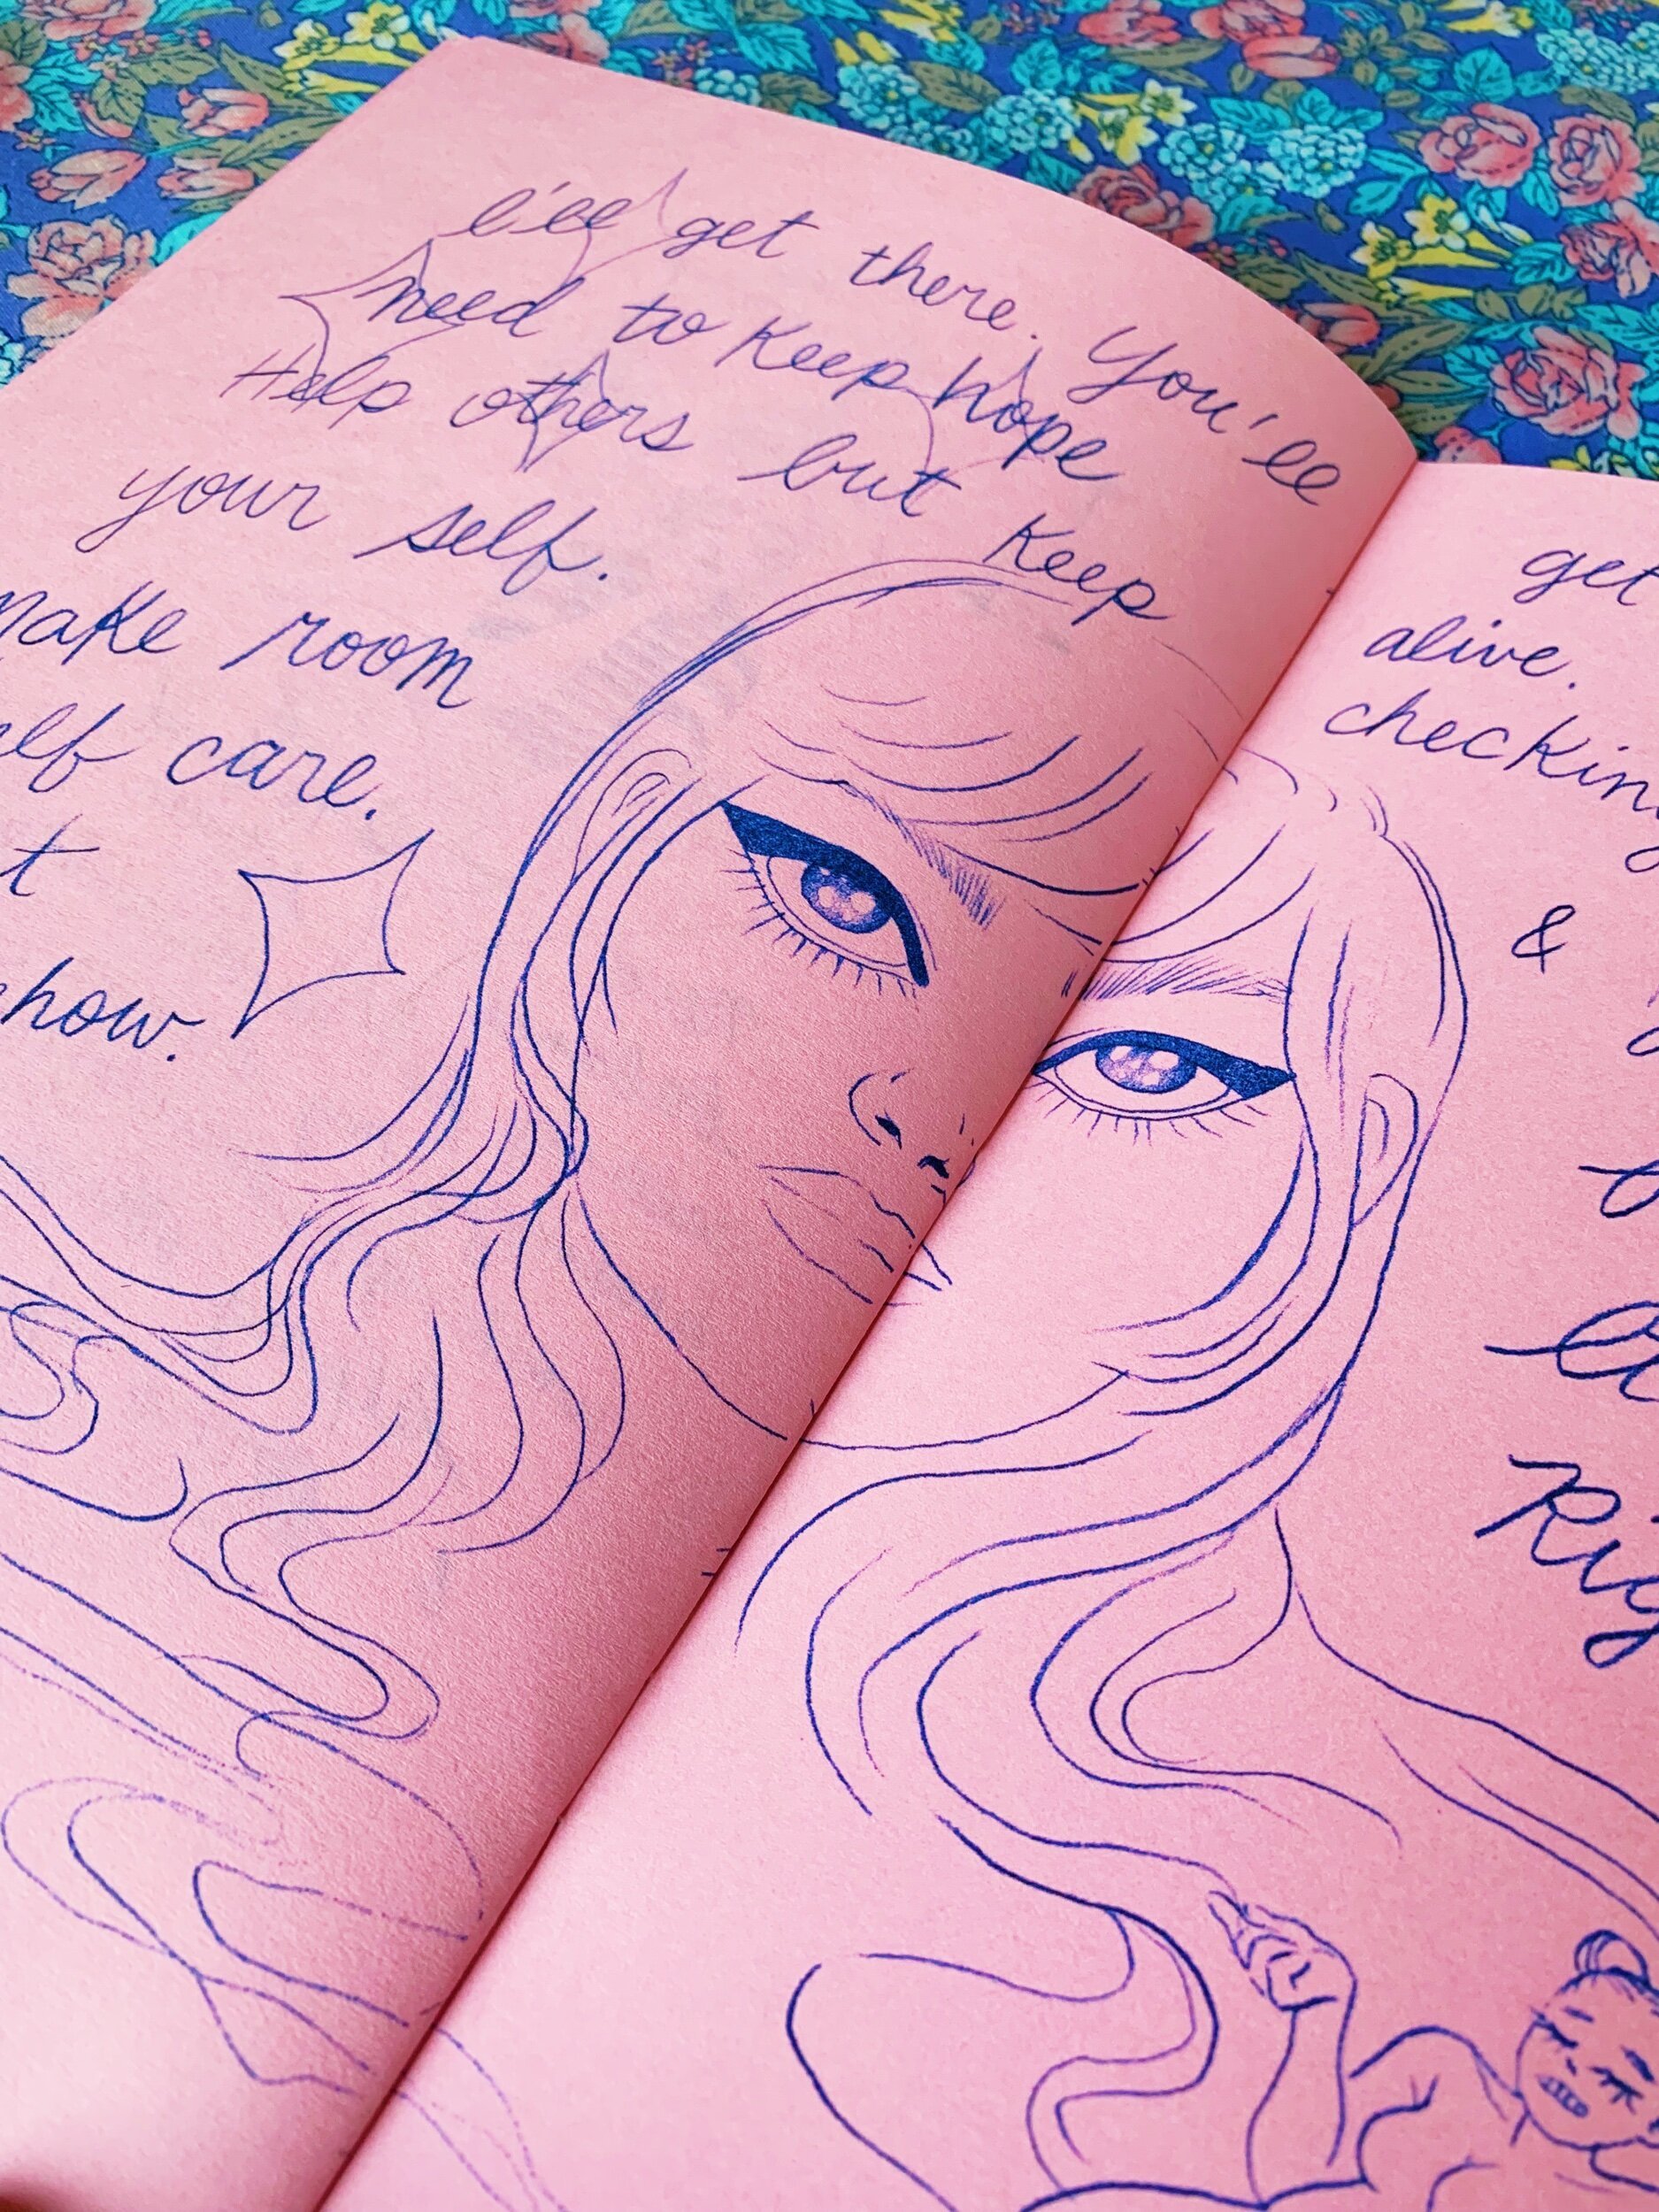 I'll get there. You'll get
need to Keep hope alive.
Help others but Keep checking
your self. &
make room
elf care.
t
how.